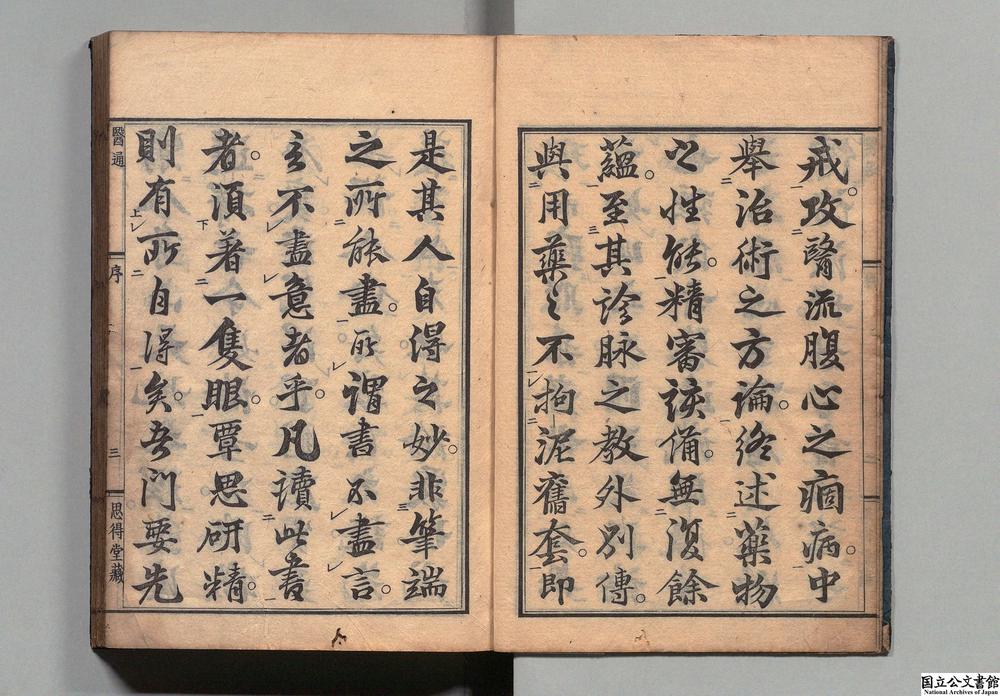 戒。攻醫流腹心之痼病。中
擧治術之方論。終述藥物
之性能。精審詳備。無復餘
蘊。至其診脉之教外別傳。
與用藥之不拘泥舊套。即
是其人自得之妙。非筆端
之所能盡。所謂書不盡言。
言不盡意者乎。凡讀此書
者。須著一隻眼。覃思研精。
則有所自得矣。吾門要先
醫通
序
三
思得堂藏
国立公文書館
National Archives of Japan